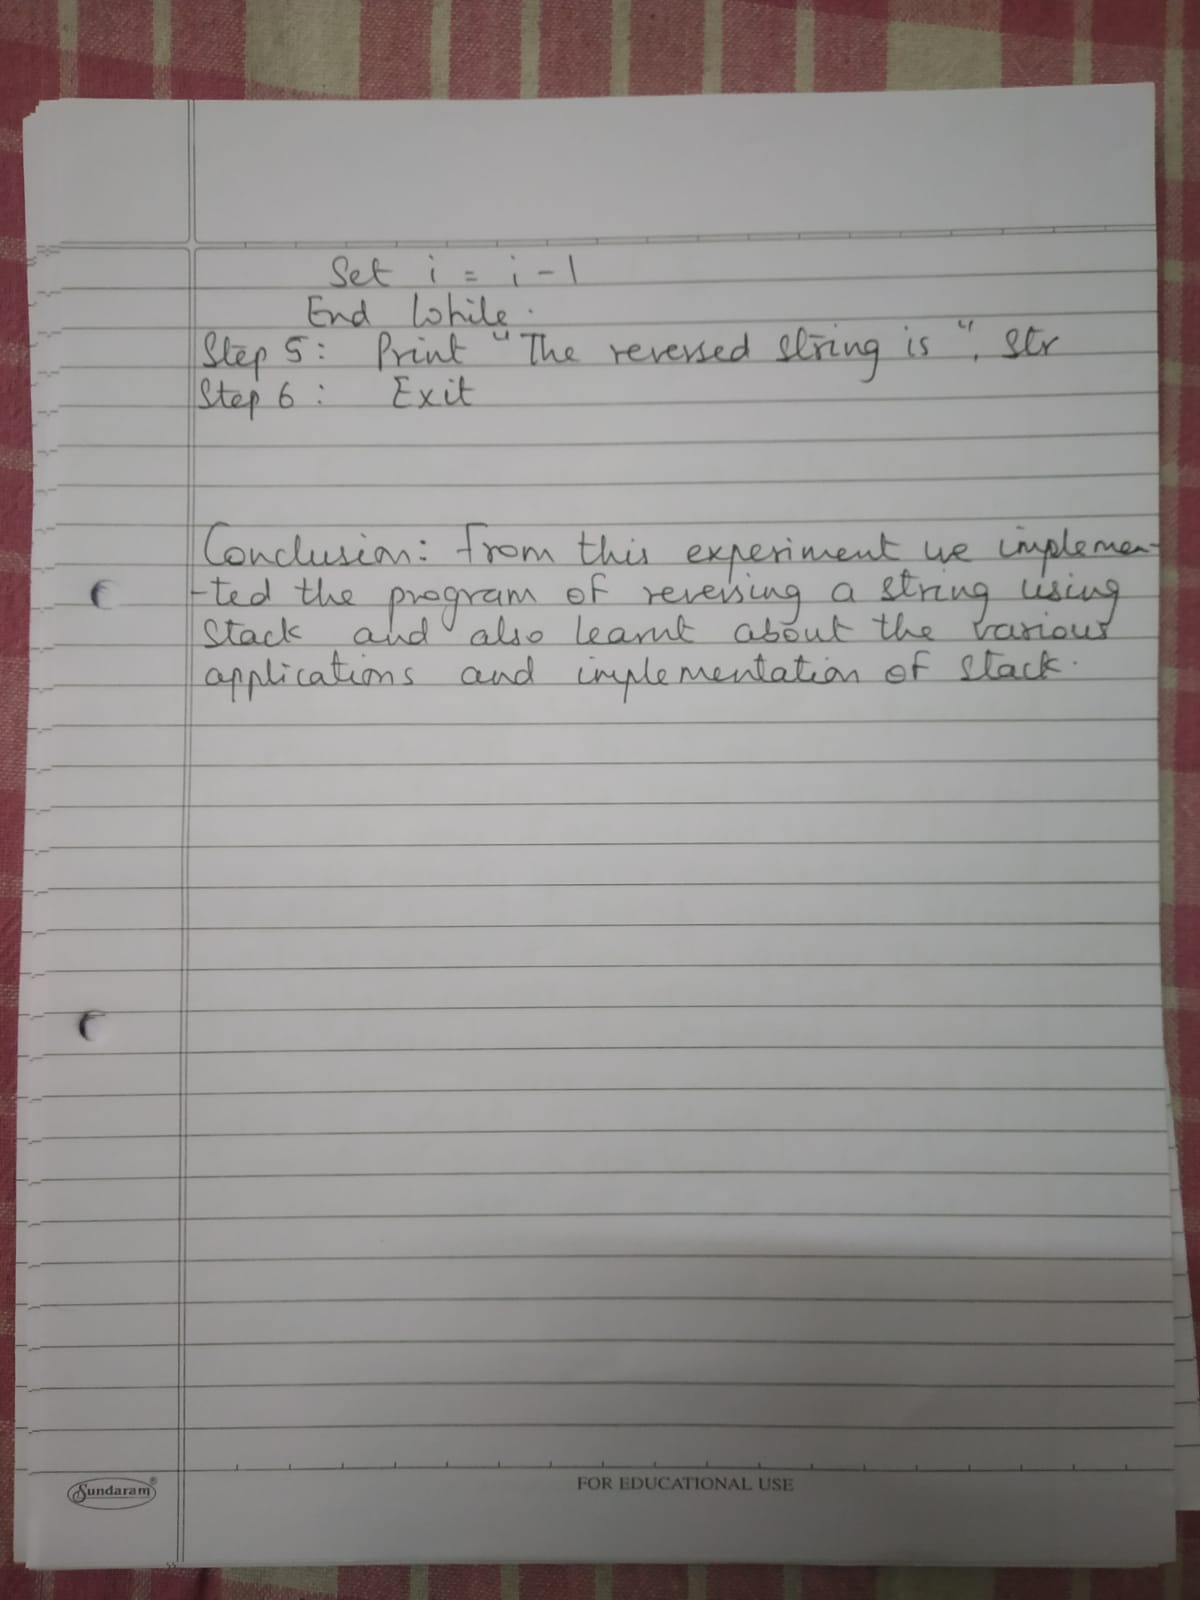 Set i = i - 1
End While.
Step 5: Print "The reversed string is", str
Step 6: Exit
Conclusion: From this experiment we implemen-
-ted the program of reversing a string using
stack and also learnt about the various
applications and implementation of stack.
Sundaram®
FOR EDUCATIONAL USE